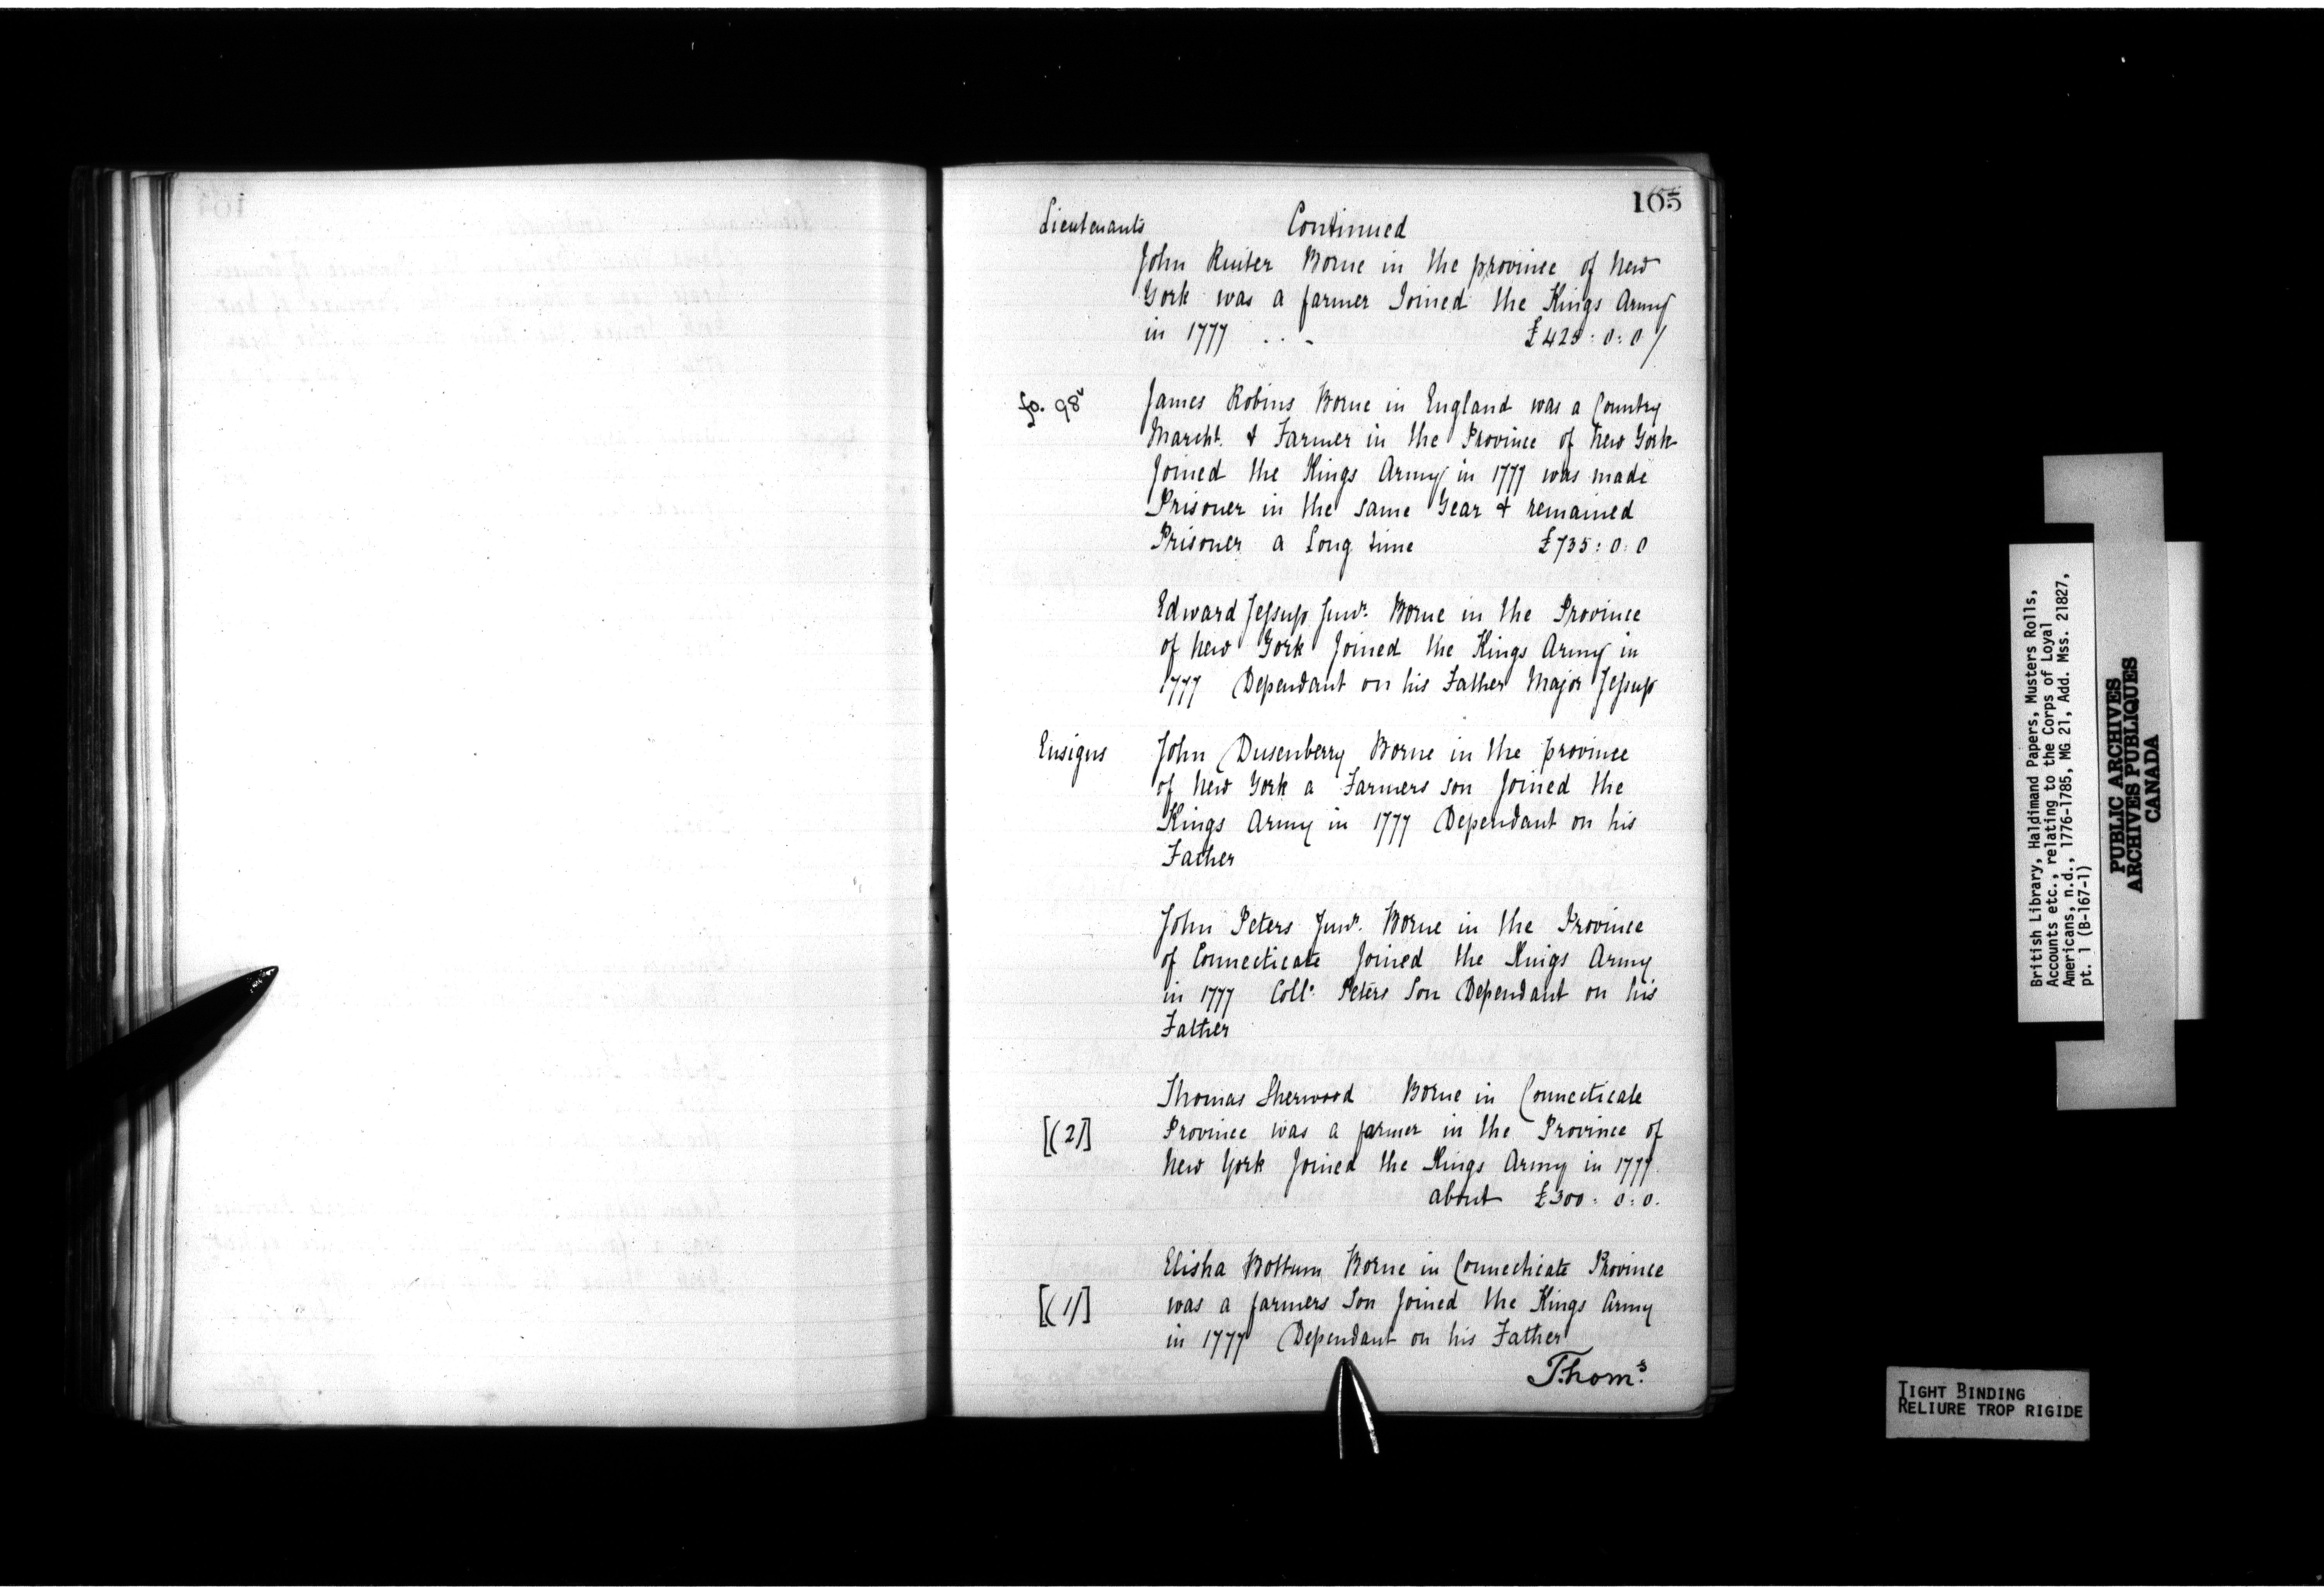 165
Lieutenants Continued
John Ruiter Borne in the province of New
York was a farmer Joined the Kings Army
in 1777 . . - £425 : 0 : 0 /
fo. 98v James Robins Borne in England was a Country
Marcht. & Farmer in the Province of New York
Joined the Kings Army in 1777 was made
Prisoner in the same Year & remained
Prisoner a Long time £735 : 0 : 0
Edward Jessup Junr. Borne in the Province
of New York Joined the Kings Army in
1777 Dependant on his Father Major Jessup
Ensigns John Dusenberry Borne in the province
of New York a Farmers son Joined the
Kings Army in 1777 Dependant on his
Father
John Peters Junr. Borne in the Province
of Connecticate Joined the Kings Army
in 1777 Coll. Peters Son Dependant on his
Father
Thomas Sherwood Borne in Connecticate
[(2)] Province was a farmer in the Province of
New York Joined the Kings Army in 1777.
about £300 : 0 : 0.
Elisha Bottum Borne in Connecticate Province
[(1)] was a farmers Son Joined the Kings Army
in 1777 Dependant on his Father
Thoms.
British Library, Haldimand Papers, Musters Rolls,
Accounts etc., relating to the Corps of Loyal
Americans, n.d., 1776-1785, MG 21, Add. Mss. 21827,
pt. 1 (B-167-1)
PUBLIC ARCHIVES
ARCHIVES PUBLIQUES
CANADA
TIGHT BINDING
RELIURE TROP RIGIDE